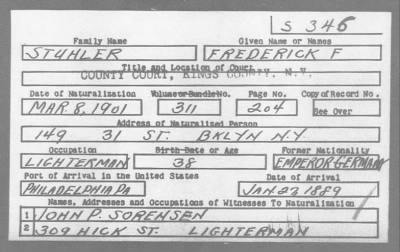 S 346
Family Name Given Name or Names
STUHLER FREDERICK F
Title and Location of Court
COUNTY COURT, KINGS COUNTY. N.Y.
Date of Naturalization Volume or Bundle No. Page No. Copy of Record No.
MAR. 8. 1901 311 204 See Over
Address of Naturalized Person
149 31 ST. BKLYN N.Y.
Occupation Birth Date or Age Former Nationality
LIGHTERMAN 38 EMPEROR GERMANY
Port of Arrival in the United States Date of Arrival
PHILADELPHIA PA JAN 1889
Names, Addresses and Occupations of Witnesses To Naturalization
1 JOHN P. SORENSEN
2 309 HICK ST. LIGHTERMAN